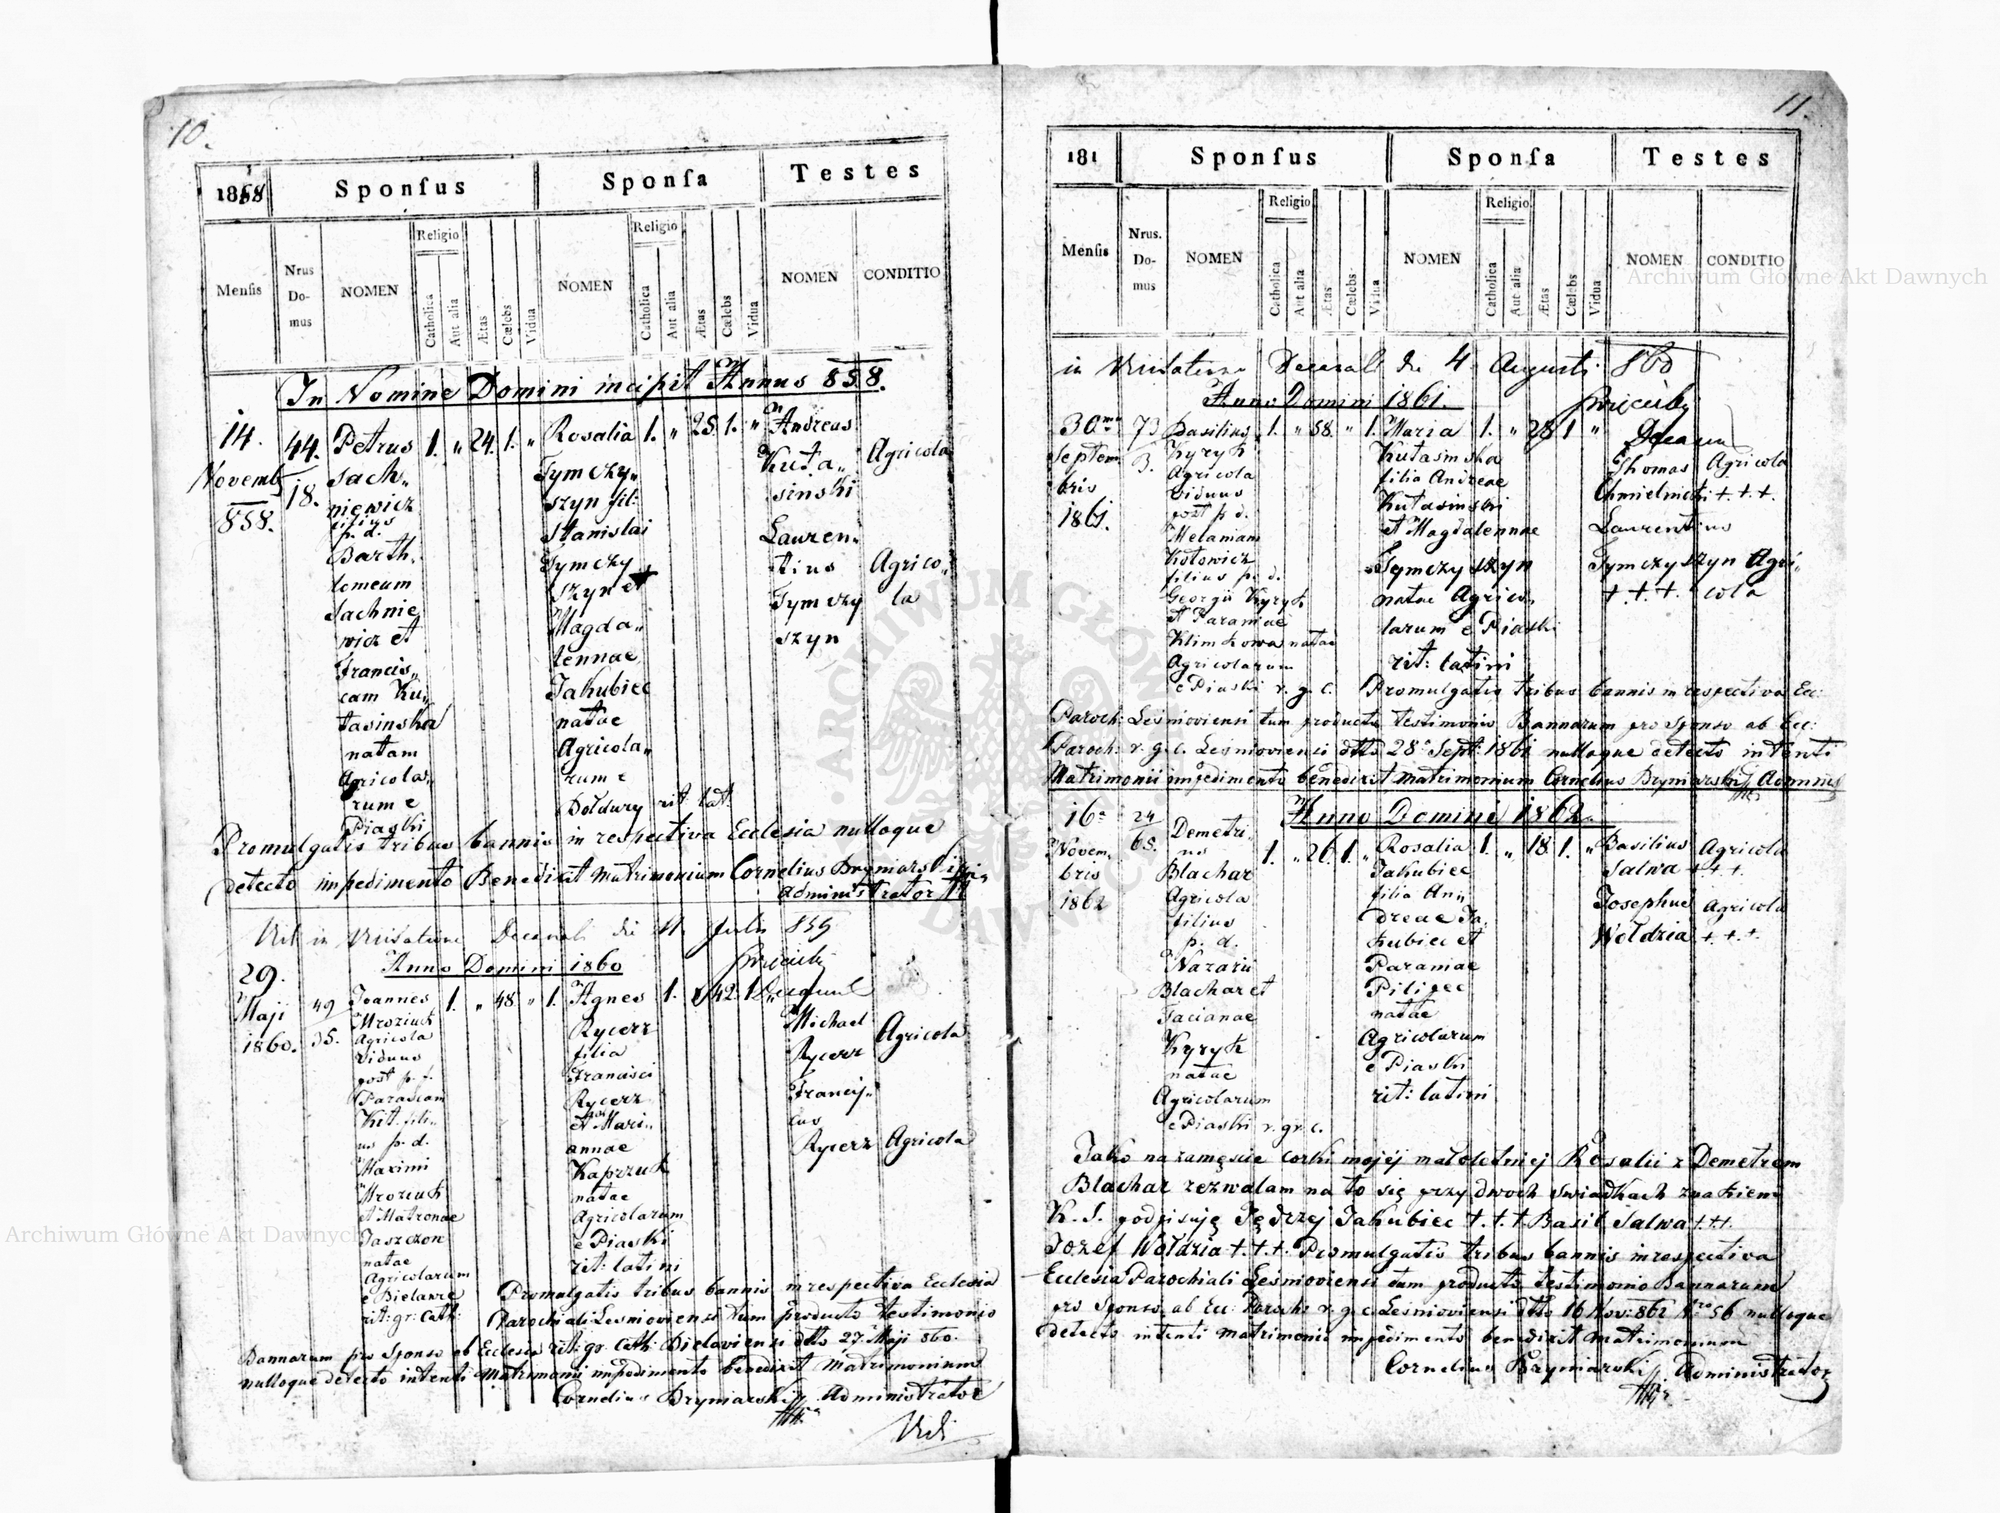 10.
1858
Sponſus
Sponſa
Testes
Mensis
Nrus Domus
NOMEN
Religio
Catholica
Aut alia
Ætas
Cœlebs
Vidua
NOMEN
Religio
Catholica
Aut alia
Ætas
Cœlebs
Vidua
NOMEN
CONDITIO
In Nomine Domini incipit Annus 858.
14.
Novemb
858.
44.
18.
Petrus
Sach„
niewicz
filius
p. d.
Barth.
lomeum
Sachnie
wicz et
Francis„
cam Ku„
tasinska
natam
Agricola„
rum e
Piaski
1. „ 24. 1. „
Rosalia
Tymczy„
szyn fil:
Stanislai
Tymczy
szyn et
Magda„
lennae
Jakubiec
natae
Agricola„
rum e
Doldury rit. lat.
1. „ 25. 1. „
Andreas
Kuta„
sinski
Agricola
Lauren„
tius
Tymczy
szyn
Agrico„
la
Promulgatis tribus bannis in respectiva Ecclesia nulloque
detecto impedimento Benedixit Matrimonium Cornelius Brymarski
Administrator
Vidi in Visitatione Decanali die 11. Julii 859
Anno Domini 1860
29.
Maji
1860.
49
35.
Joannes
Mroziuk
Agricola
Viduus
post p. f.
Parascam
Kit. fili„
us p. d.
Maximi
Mroziuk
et Matronae
Jaszczon
natae
Agricolarum
e Bielawce
rit: gr: Cath:
1. „ 48. „ 1.
Agnes
Rycerz
filia
Francisci
Rycerz
et Mari„
annae
Kaprzuk
natae
Agricolarum
e Piaski
rit: latini
1. „ 42. 1.
Michael
Rycerz
Agricola
Francis„
cus
Rycerz
Agricola
Promulgatis tribus bannis in respectiva Ecclesia
Parochiali Lesnioviensi tum producto testimonio
Bannarum pro Sponso ab Ecclesia rit: gr: Cath: Bielaviensi dtto 27. Maji 860.
nulloque detecto intenti Matrimonii impedimento benedixit Matrimonium
Cornelius Brymarski Administrator
Vidi
11.
181
Sponſus
Sponſa
Testes
Mensis
Nrus. Domus
NOMEN
Religio
Catholica
Aut alia
Ætas
Cœlebs
Vidua
NOMEN
Religio
Catholica
Aut alia
Ætas
Cœlebs
Vidua
NOMEN
CONDITIO
in Visitatione Decanali die 4 Augusti 860
Anno Domini 1861.
30
Septem
bris
1861.
73
3.
Basilius
Kyryk
Agricola
Viduus
post p. d.
Melaniam
Kotowicz
filius p. d.
Georgii Kyryk
et Paraniae
Klimkowa natae
Agricolarum
e Piaski r. g. c.
1. „ 58. „ 1.
Maria
Kutasinska
filia Andreae
Kutasinski
et Magdalennae
Tymczyszyn
natae Agrico„
larum e Piaski
rit: latini
1. „ 28 1 „
Thomas
Chmielnicki + + +.
Agricola
Laurentius
Tymczyszyn Agri„
+. +. +. cola
Promulgatis tribus bannis in respectiva Ecc:
Paroch: Lesnioviensi tum producto testimonio Bannarum pro Sponso ab Ecc:
Paroch: r. g. c. Lesnioviensi dtto 28 Sept: 1861 nulloque detecto intenti
Matrimonii impedimento benedixit Matrimonium Cornelius Brymarski Adminis
Anno Domini 1862.
16
Novem„
bris
1862
24
65.
Demetri„
us
Blachar
Agricola
filius
p. d.
Nazarii
Blachar et
Tacianae
Kyryk
natae
Agricolarum
e Piaski r. gr. c.
1. „ 26. 1. „
Rosalia
Jakubiec
filia An„
dreae Ja„
kubiec et
Paraniae
Pilipec
natae
Agricolarum
e Piaski
rit: latini
1. „ 18. 1. „
Basilius
Salwa
Agricola
+. +. +.
Josephus
Wołdzia
Agricola
+. +. +.
Jako na zamęscie corki mojéj małoletniej Rosalii z Demetrem
Blachar zezwalam na to się przy dwoch swiadkach znakiem
K. S. podpisuję Jędrzej Jakubiec +. +. + Basil Salwa + + +.
Jozef Wołdzia +. +. +. Promulgatis tribus bannis in respectiva
Ecclesia Parochiali Lesnioviensi tum producto testimonio Bannarum
pro Sponso ab Ecc: Paroch: r. g. c. Lesnioviensi dtto 16 Nov: 862 Nro 56 nulloque
detecto intenti Matrimonii impedimento benedixit Matrimonium
Cornelius Brymarski Administrator
Archiwum Główne Akt Dawnych
Archiwum Główne Akt Dawnych
ARCHIWUM GŁÓWNE AKT DAWNYCH